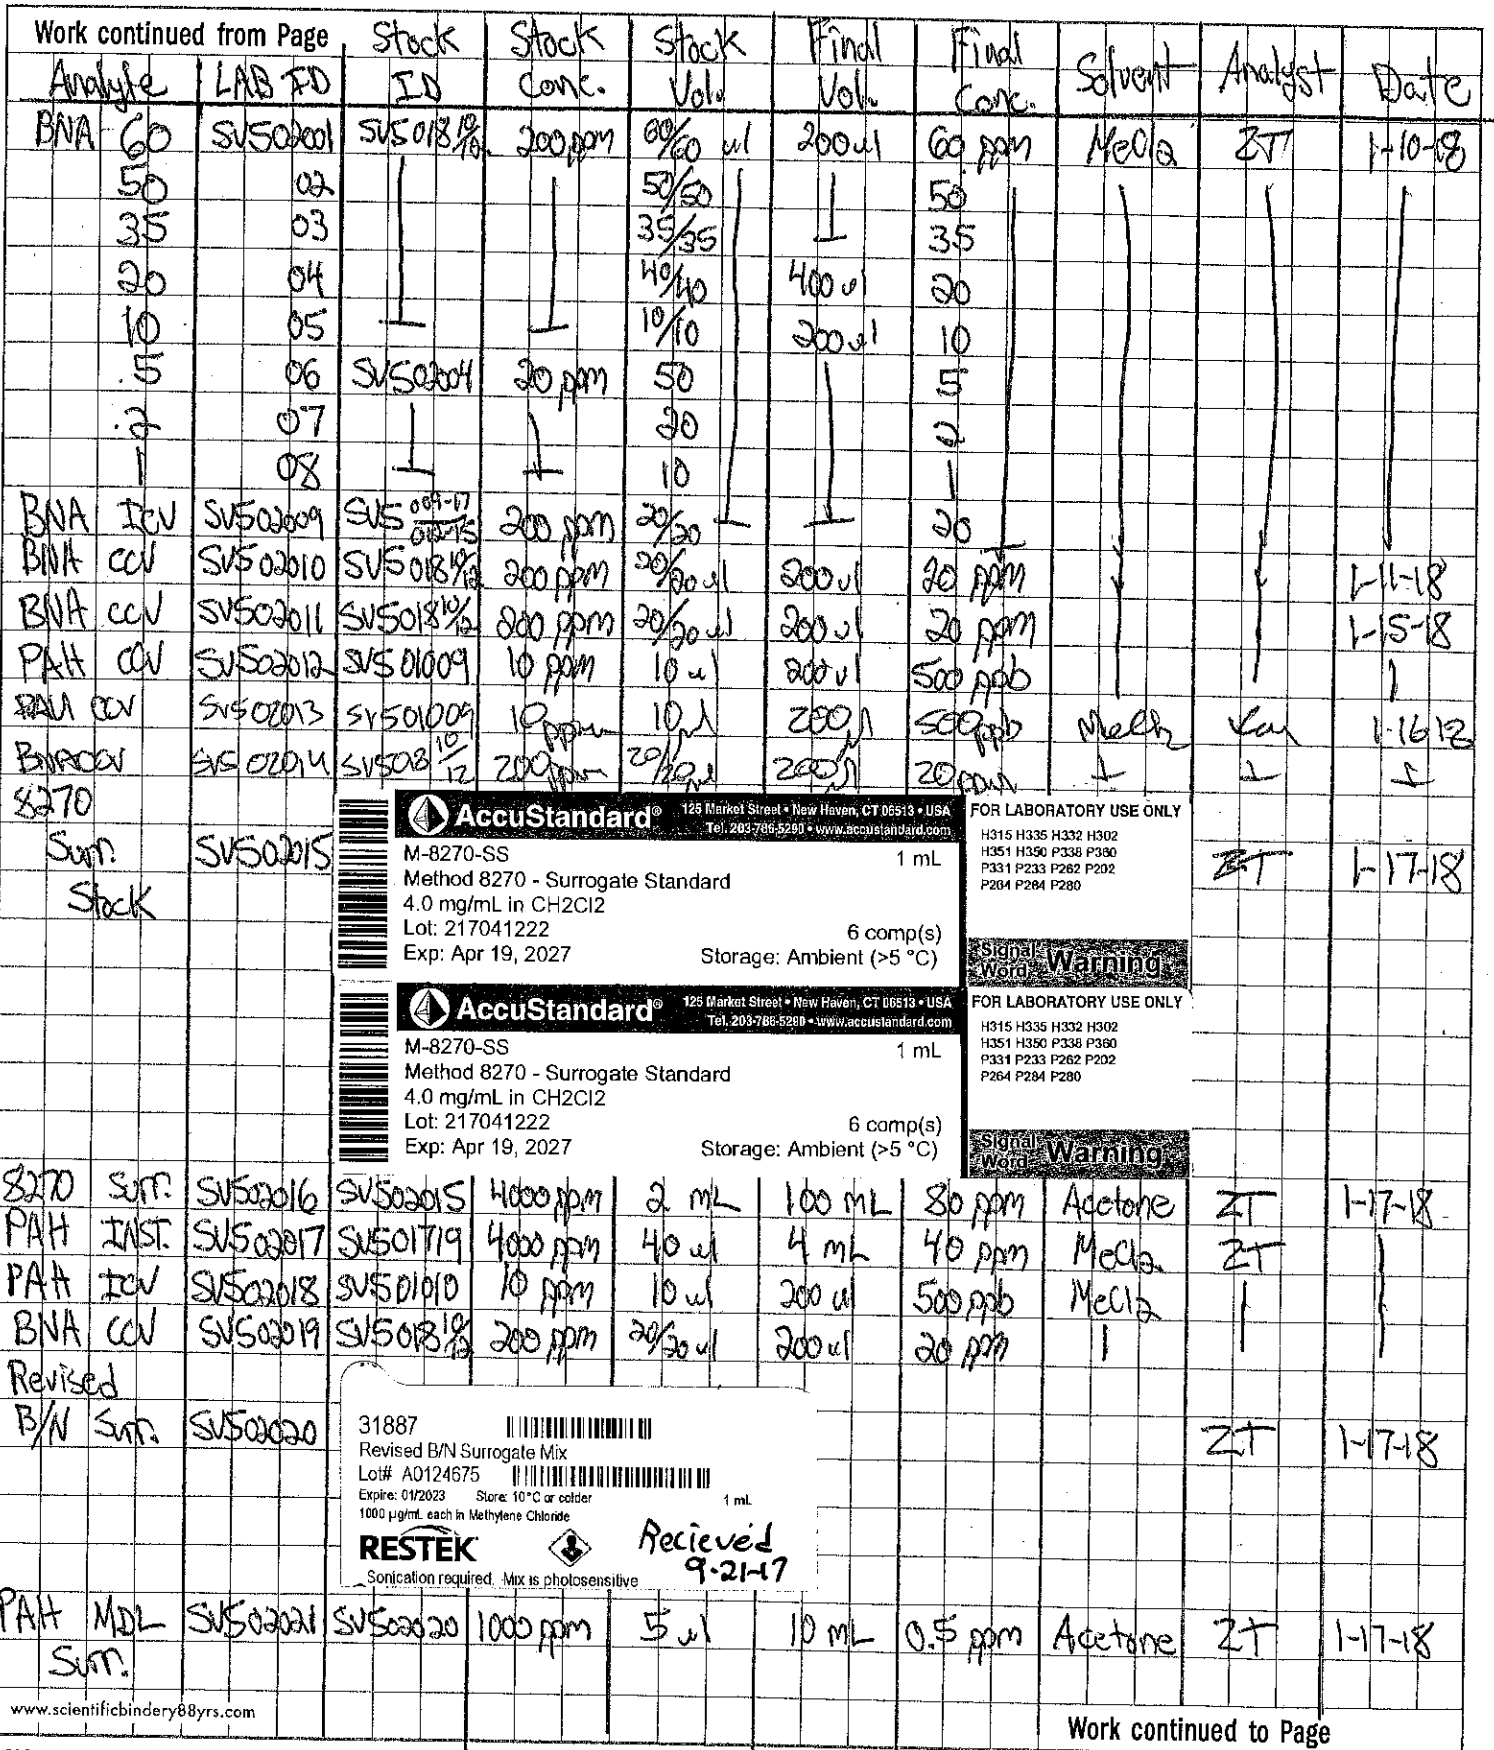 Work continued from Page Stock Stock Stock Final Final Solvent Analyst Date
Analyte LAB ID ID Conc. Vol. Vol. Conc.
BNA 60 SV502001 SV5018 10/12 200 ppm 60/60 ul 200 ul 60 ppm MeCl2 ZT 1-10-18
50 02 50/50 50
35 03 35/35 35
20 04 40/40 400 ul 20
10 05 10/10 200 ul 10
5 06 SV502004 20 ppm 50 5
2 07 20 2
1 08 10 1
BNA ICV SV502009 SV5 009-17/012-15 200 ppm 20/20 20
BNA CCV SV502010 SV5018 10/12 200 ppm 20/20 ul 200 ul 20 ppm 1-11-18
BNA CCV SV502011 SV5018 10/12 200 ppm 20/20 ul 200 ul 20 ppm 1-15-18
PAH CCV SV502012 SV501009 10 ppm 10 ul 200 ul 500 ppb
PAH CCV SV502013 SV501009 10 ppm 10 ul 200 ul 500 ppb MeCl2 1-16-18
BNA CCV SV502014 SV5018 10/12 200 ppm 20/20 ul 200 ul 20 ppm
8270
Surr. SV502015 ZT 1-17-18
Stock
AccuStandard® 125 Market Street • New Haven, CT 06513 • USA
Tel. 203-786-5290 • www.accustandard.com
M-8270-SS 1 mL
Method 8270 - Surrogate Standard
4.0 mg/mL in CH2Cl2
Lot: 217041222 6 comp(s)
Exp: Apr 19, 2027 Storage: Ambient (>5 °C)
FOR LABORATORY USE ONLY
H315 H335 H332 H302
H351 H350 P338 P360
P331 P233 P262 P202
P264 P284 P280
Signal Word Warning
AccuStandard® 125 Market Street • New Haven, CT 06513 • USA
Tel. 203-786-5290 • www.accustandard.com
M-8270-SS 1 mL
Method 8270 - Surrogate Standard
4.0 mg/mL in CH2Cl2
Lot: 217041222 6 comp(s)
Exp: Apr 19, 2027 Storage: Ambient (>5 °C)
FOR LABORATORY USE ONLY
H315 H335 H332 H302
H351 H350 P338 P360
P331 P233 P262 P202
P264 P284 P280
Signal Word Warning
8270 Surr. SV502016 SV502015 4000 ppm 2 mL 100 mL 80 ppm Acetone ZT 1-17-18
PAH INST. SV502017 SV501719 4000 ppm 40 ul 4 mL 40 ppm MeCl2 ZT
PAH ICV SV502018 SV501010 10 ppm 10 ul 200 ul 500 ppb MeCl2
BNA CCV SV502019 SV5018 10/12 200 ppm 20/20 ul 200 ul 20 ppm
Revised
B/N Surr. SV502020 ZT 1-17-18
31887
Revised B/N Surrogate Mix
Lot# A0124675
Expire: 01/2023 Store: 10°C or colder 1 mL
1000 µg/mL each in Methylene Chloride
RESTEK
Recieved
9-21-17
Sonication required. Mix is photosensitive
PAH MDL SV502021 SV502020 1000 ppm 5 ul 10 mL 0.5 ppm Acetone ZT 1-17-18
Surr.
www.scientificbindery88yrs.com
Work continued to Page